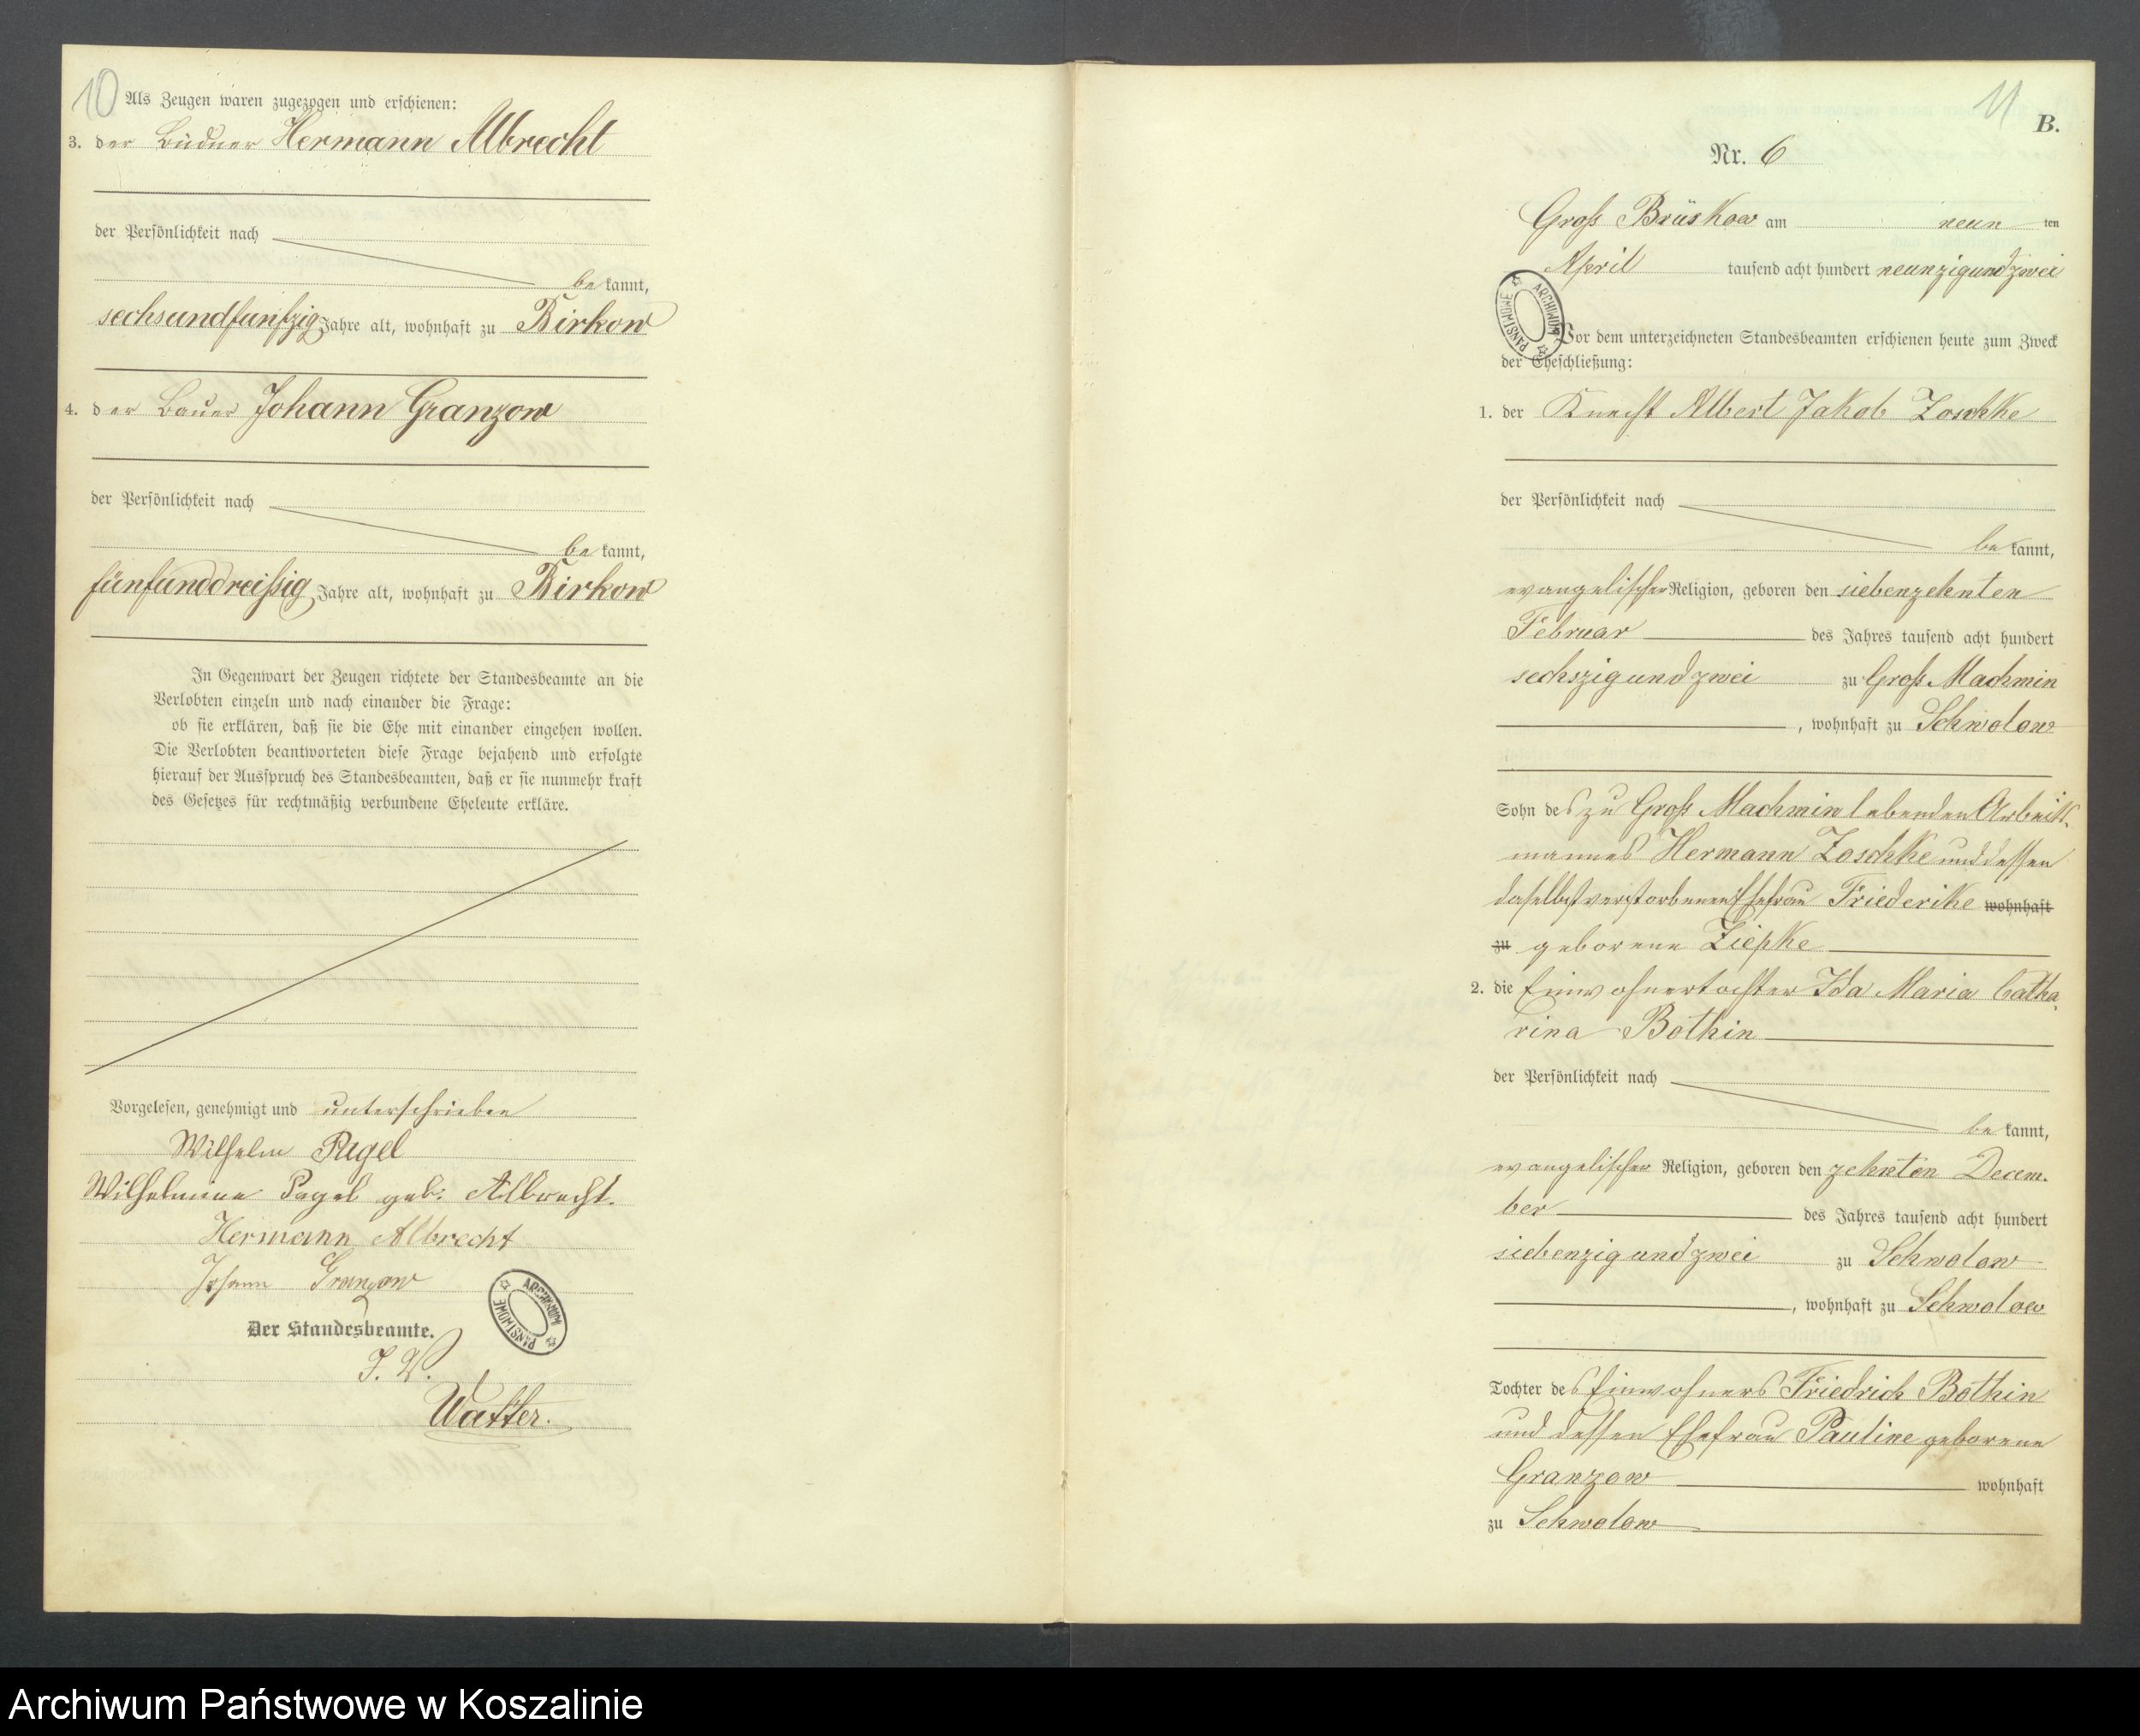 10
Als Zeugen waren zugezogen und erschienen:
3. der Büdner Hermann Albrecht
der Persönlichkeit nach
be kannt,
sechsundfunfzig Jahre alt, wohnhaft zu Birkow
4. der Bauer Johann Granzow
der Persönlichkeit nach
be kannt,
fünfunddreißig Jahre alt, wohnhaft zu Birkow
In Gegenwart der Zeugen richtete der Standesbeamte an die
Verlobten einzeln und nach einander die Frage:
ob sie erklären, daß sie die Ehe mit einander eingehen wollen.
Die Verlobten beantworteten diese Frage bejahend und erfolgte
hierauf der Ausspruch des Standesbeamten, daß er sie nunmehr kraft
des Gesetzes für rechtmäßig verbundene Eheleute erkläre.
Vorgelesen, genehmigt und unterschrieben
Wilhelm Pagel
Wilhelmine Pagel geb: Albrecht.
Hermann Albrecht
Johann Granzow
ARCHIWUM PAŃSTWOWE
Der Standesbeamte.
J. V.
Watter.
11
B.
Nr. 6
Groß Brüskow am neun ten
April tausend acht hundert neunzigundzwei
ARCHIWUM PAŃSTWOWE
Vor dem unterzeichneten Standesbeamten erschienen heute zum Zweck
der Eheschließung:
1. der Knecht Albert Jakob Zoschke
der Persönlichkeit nach
be kannt,
evangelischer Religion, geboren den siebenzehnten
Februar des Jahres tausend acht hundert
sechszigundzwei zu Groß Machmin
, wohnhaft zu Schwolow
Sohn des zu Groß Machmin lebenden Arbeits-
mannes Hermann Zoschke und dessen
daselbst verstorbenen Ehefrau Friederike wohnhaft
zu geborene Ziepke
2. die Einwohnertochter Ida Maria Catha-
rina Bothin
der Persönlichkeit nach
be kannt,
evangelischer Religion, geboren den zehnten Decem-
ber des Jahres tausend acht hundert
siebenzigundzwei zu Schwolow
, wohnhaft zu Schwolow
Tochter des Einwohners Friedrich Bothin
und dessen Ehefrau Pauline geborene
Granzow wohnhaft
zu Schwolow
Archiwum Państwowe w Koszalinie